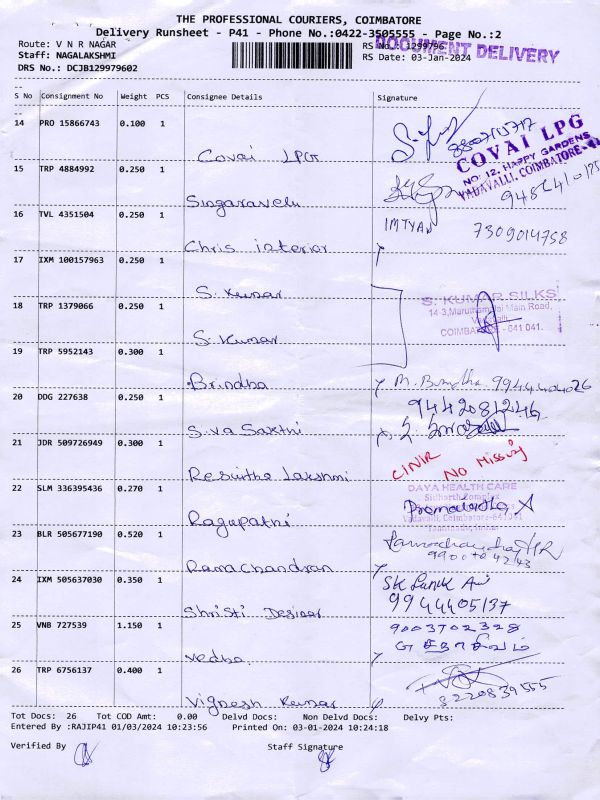 THE PROFESSIONAL COURIERS, COIMBATORE
Delivery Runsheet - P41 - Phone No.:0422-3505555 - Page No.:2
Route: V N R NAGAR RS No.: 1299796
DOCUMENT DELIVERY
Staff: NAGALAKSHMI RS Date: 03-Jan-2024
DRS No.: DCJB129979602
S No Consignment No Weight PCS Consignee Details Signature
14 PRO 15866743 0.100 1 Covai LPG
COVAI LPG
NO: 12, HAPPY GARDENS
VADAVALLI, COIMBATORE
15 TRP 4884992 0.250 1 Singaravelu
16 TVL 4351504 0.250 1 Chris interior IMTYAN 7309014758
17 IXM 100157963 0.250 1 S. Kumar
S. KUMAR SILKS
14-3, Maruthamalai Main Road,
Vadavalli
COIMBATORE - 641 041.
18 TRP 1379066 0.250 1 S. Kumar
19 TRP 5952143 0.300 1 Brindha
20 DDG 227638 0.250 1 Siva Sakthi 9442081246
21 JDR 509726949 0.300 1 Reshitha Lakshmi
NO Missing
22 SLM 336395436 0.270 1 Ragupathi
DAYA HEALTH CARE
Sidharth Complex
Vadavalli, Coimbatore-641041
23 BLR 505677190 0.520 1 Ramachandran
24 IXM 505637030 0.350 1 Shristi Designer
9944405137
25 VNB 727539 1.150 1 Vedha
9003702328
26 TRP 6756137 0.400 1 Vignesh Kumar
Tot Docs: 26 Tot COD Amt: 0.00 Delvd Docs: Non Delvd Docs: Delvy Pts:
Entered By :RAJIP41 01/03/2024 10:23:56 Printed On: 03-01-2024 10:24:18
Verified By Staff Signature